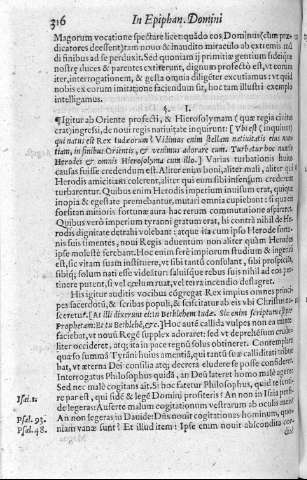 316 In Epiphan. Domini
Magorum vocatione spectare licet: quādo eos Dominus (cum præ-
dicatores deessent) tam nouo & inaudito miraculo ab extremis mū
di finibus ad se perduxit. Sed quoniam ij primitiæ gentium fidei que
nostræ duces & parentes extiterunt, dignum profectò est, vt eorum
iter, interrogationem, & gesta omnia diligēter excutiamus: vt quid
nobis ex eorum imitatione faciendum sit, hoc tam illustri exemplo
intelligamus.
§. I.
¶ Igitur ab Oriente profecti, & Hierosolymam (quæ regia ciuitas
erat) ingressi, de noui regis natiuitate inquirunt: [Vbi est (inquiunt)
qui natus est Rex Iudæorum? Vidimus enim stellam natiuitatis eius nun
tiam, in finibus Orientis, & venimus adorare eum. Turbatur hoc nuntio
Herodes & omnis Hierosolyma cum illo.] Varias turbationis huius
causas fuisse credendum est. Aliter enim boni, aliter mali, aliter qui
Herodis amicitias colerent, aliter qui eum sibi infensum crederent
turbarentur. Quibus enim Herodis imperium inuisum erat, quique
inopia & egestate premebantur, mutari omnia cupiebant: si quam
forsitan amissis fortunæ aura hac rerum commutatione aspiraret.
Quibus verò imperium tyranni gratum erat, hi contrà nihil de He-
rodis dignitate detrahi volebant: atque ita cùm ipso Herode som-
nis suis timentes, noui Regis aduentum non aliter quàm Herodes
ipse molestè ferebant. Hoc enim ferè impiorum studium & ingenium
est, sic vitam suam instituere, vt sibi tantùm consulant, sibi prospiciāt,
sibiq́; solum nati esse videātur: saluisque rebus suis nihil ad eos per-
tinere putent, si vel cælum ruat, vel terra incendio deflagret.
His igitur auditis vocibus cōgregat Rex impius omnes princi-
pes sacerdotū, & scribas populi, & sciscitatur ab eis vbi Christus na-
sceretur. [At illi dixerunt ei: In Bethleem Iudæ. Sic enim scriptum est per
Prophetam: Et tu Bethleē, &c.] Hoc autē callida vulpes non ea mente
faciebat, vt nouū Regē supplex adoraret: sed vt deprehēsum crude-
liter occideret, atq́; ita in pace regnū solus obtineret. Contemplare
quæso summā Tyrāni huius amentiā, qui tantū suæ calliditati tribue
bat, vt æterna Dei consilia atq́; decreta eludere se posse consideret.
Interrogatus Philosophus quidā, an Deū lateret homo malè agens.
Sed nec malè cogitans ait. Si hoc fatetur Philosophus, quid te senti-
Isai. 1. re par est, qui fidē & legē Domini profiteris? An non in Isaia pro
de legeras: Auferte malum cogitationum vestrarum ab oculis meis?
Psal. 93. An non legeras in Dauide: Dñs nouit cogitationes hominum, quo-
Psal. 48. niam vanæ sunt? Et illud item: Ipse enim nouit abscondita cor-
dis?